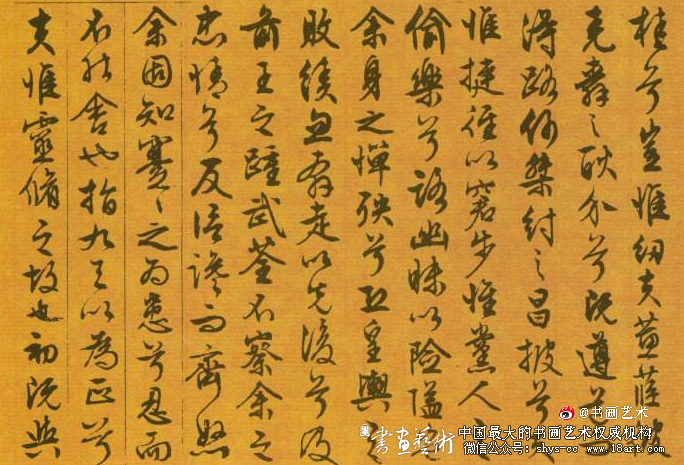 桂兮豈惟紉夫蕙茝彼
堯舜之耿介兮既遵道
得路何桀紂之昌披兮夫
惟捷徑以窘步惟黨人
偷樂兮路幽昧以險隘
余身之憚殃兮恐皇輿
敗績忽奔走以先後兮及
前王之踵武荃不察余之
忠情兮反信讒而齊怒
余固知謇〻之為患兮忍而
不能舍也指九天以為正兮
夫惟靈脩之故也初既與
@书画艺术
書畫藝術 中国最大的书画艺术权威机构
微信公众号：shys-cc www.18art.com